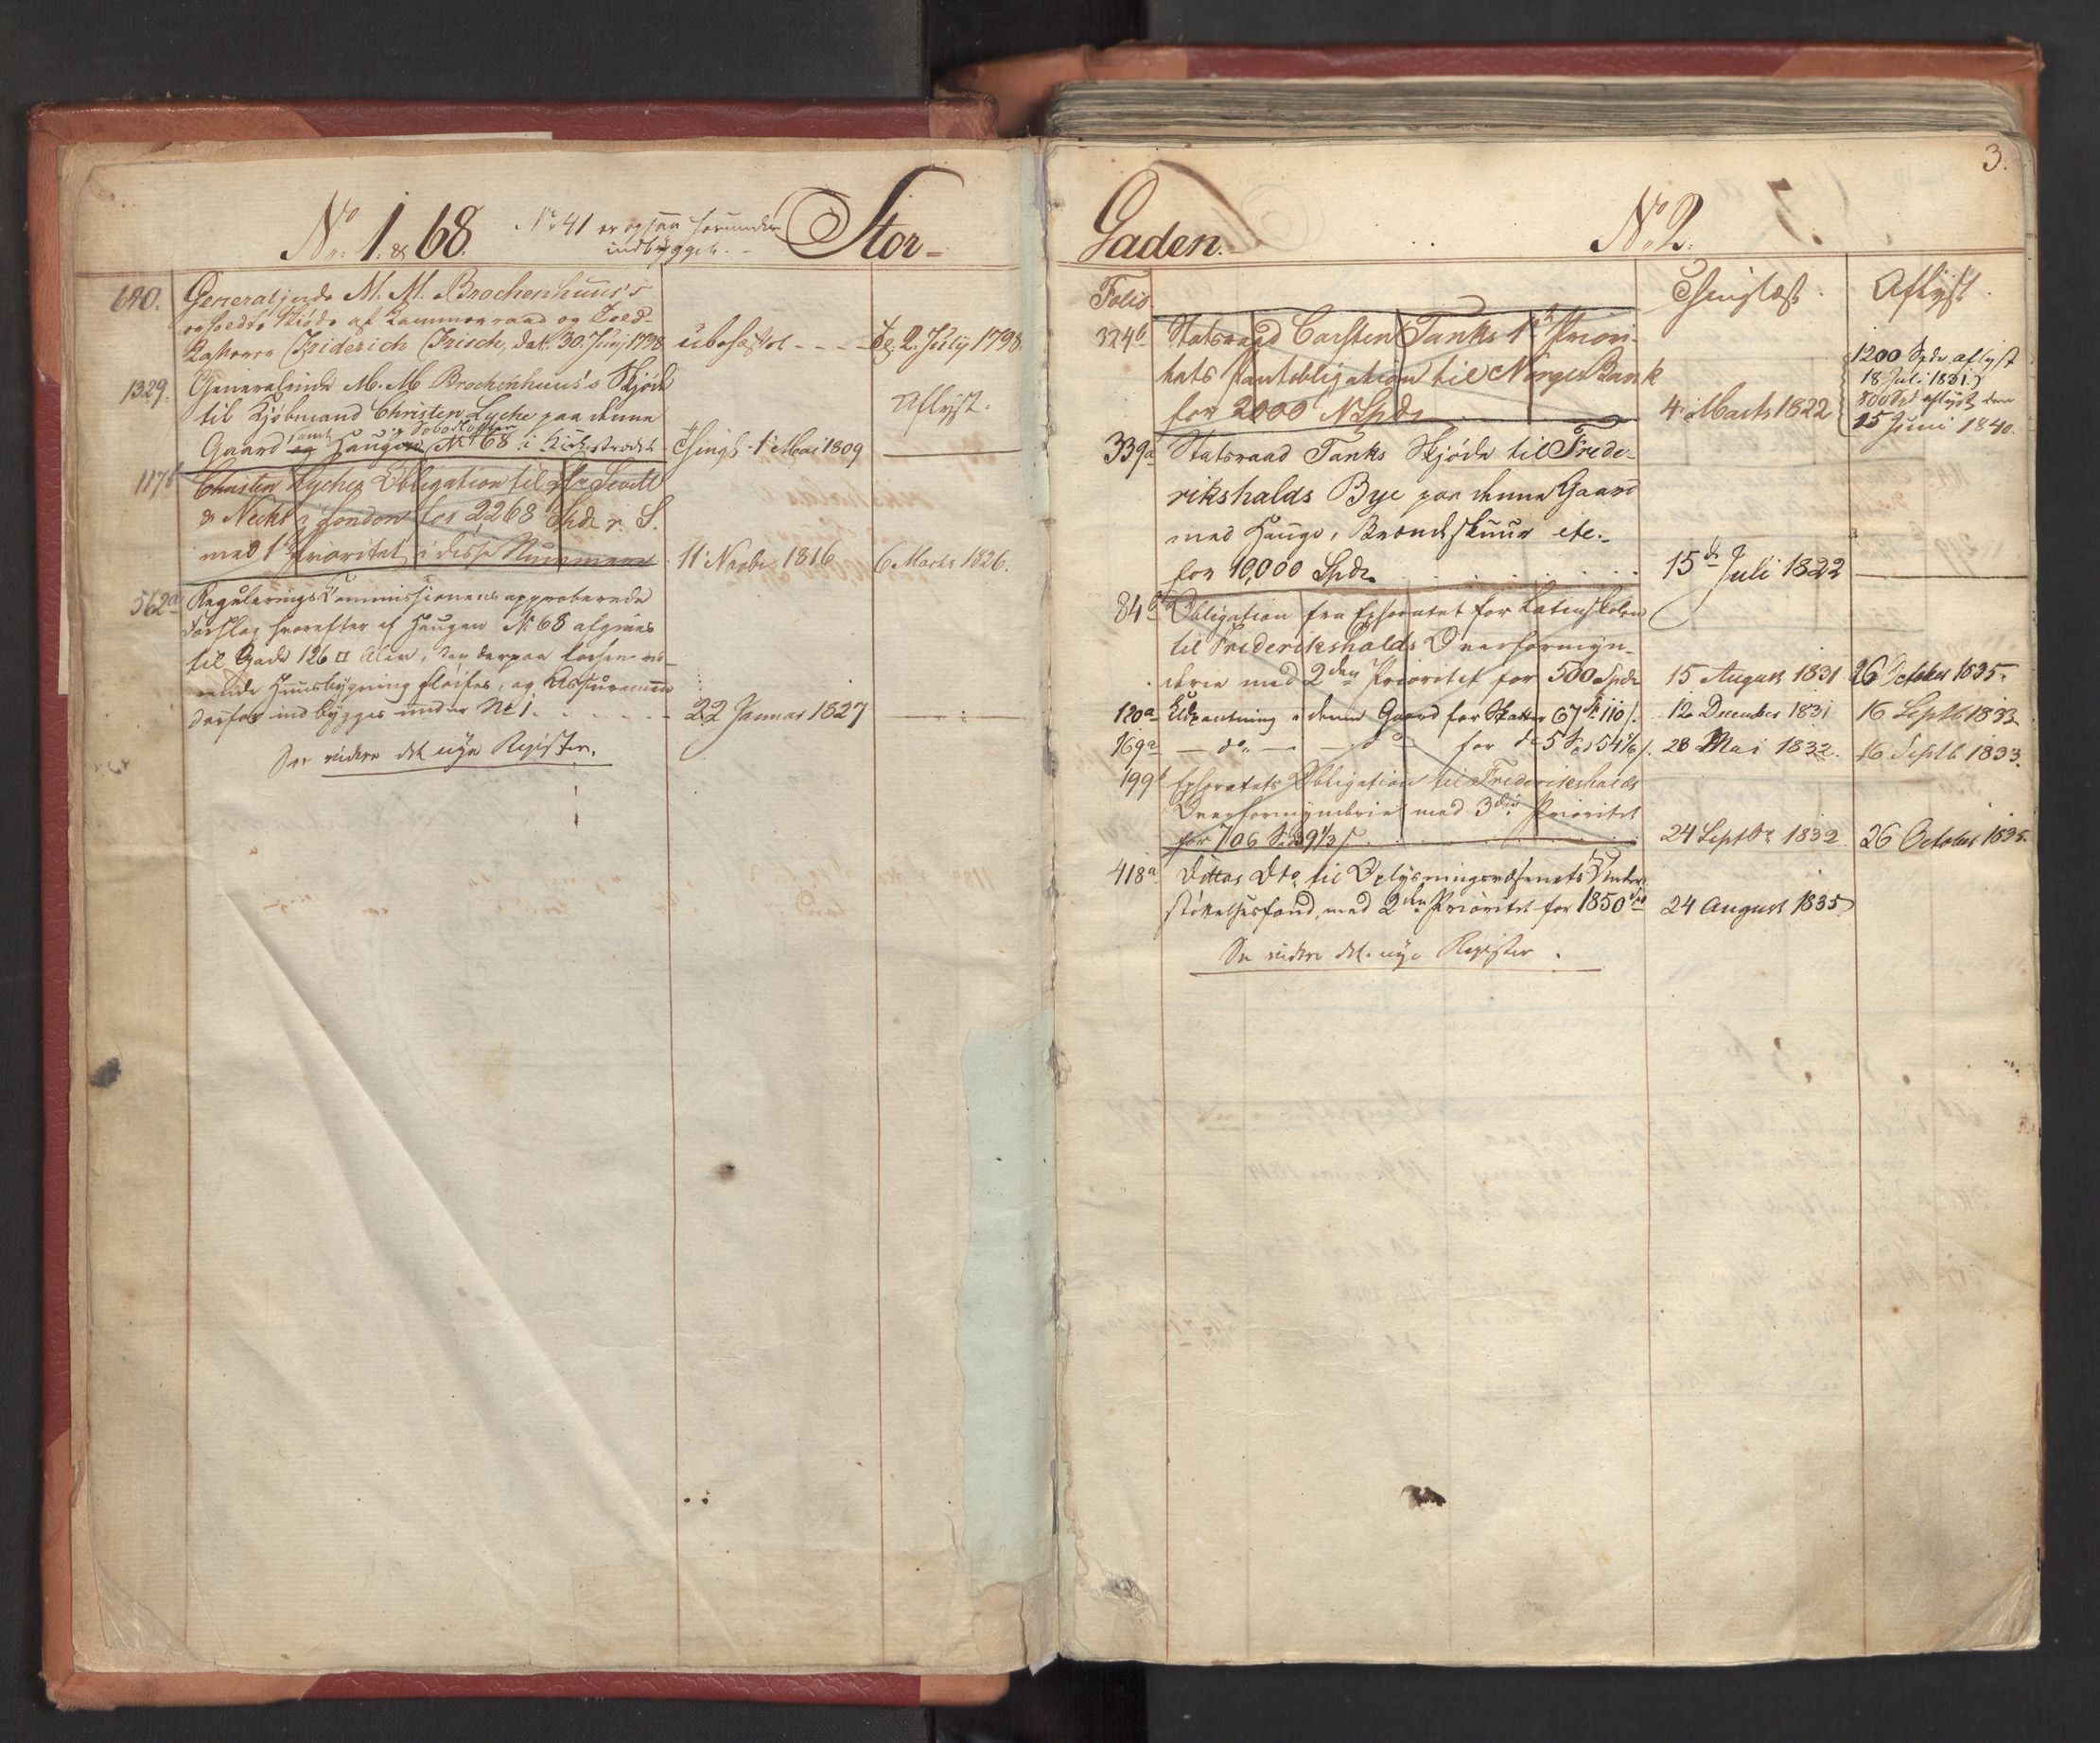 No. 1. & 68. No 41 er ogsaa herunder
indbygget. Stor-
640. Generalinde M. M. Brochenhuus's
Skiøde af Kammerraad og Told-
Kasserer Friderich Frisch, dat. 30. Junij 1798 ubehæftet - - - - 2. July 1798.
1329. Generalinde M. M Brochenhuus's Skjøde
til Kjøbmand Christen Lyche paa denne Aflyst.
Gaard samt Haugen No 68 i Kirkestrædet Thingl. 1 Mai 1809
1176 Christen Lyches Obligation til
& i London for 2268 Spdr. S.
med 1e Prioritet i disse Nummere. 11 Novbr 1816 6 Marts 1826.
562a Regulerings Kommissionens approberede
Forslag hvorefter af Haugen No 68 afgives
til Gade 126 □ Alen, den derpaa
Huusbygning sløifes, og
derfor indbygges under No 1. . . . . . 22 Januar 1827
See videre det nye Register.
3.
Gaden. No 2.
Folio Thinglæst. Aflyst.
324b Statsraad Carsten Tanks 1ste Priori-
tets Pantobligation til Norges Bank
for 2000 NSpdr 4 Marts 1822
1200 Spdr aflyst
18 Juli 1831.
800 Spd aflyst den
15 Juni 1840.
339a Statsraad Tanks Skjøde til Frede-
rikshalds Bye paa denne Gaard
med Hauge, Brændskuur etc.
for 10,000 Spdr. 15de Juli 1822
84b Obligation fra Ephoratet for Latinskolen
til Frederikshalds Overformyn-
derie med 2den Prioritet for 500 Spdr 15 August 1831 26 October 1835.
120a Udpantning i denne Gaard for Skatter 67 110 12 December 1831 16 Septb 1833
169a — do — — do for 5 28 Mai 1832. 16 Septb 1833.
199 Ephoratets Obligation til Frederikshalds
Overformynderie med 3die Prioritet
for 706 24 Septbr 1832. 26 October 1835.
418a Dittos Dto til Oplysningsvæsenets Under-
støttelsesfond, med 2den Prioritet for 1850 24 August 1835
See videre det nye Register.